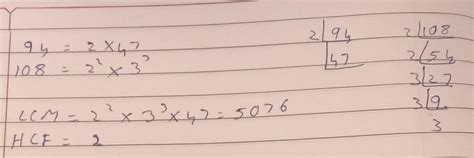 94 = 2 × 47
108 = 2² × 3³
LCM = 2² × 3³ × 47 = 5076
HCF = 2
2 | 94
47
2 | 108
2 | 54
3 | 27
3 | 9
3